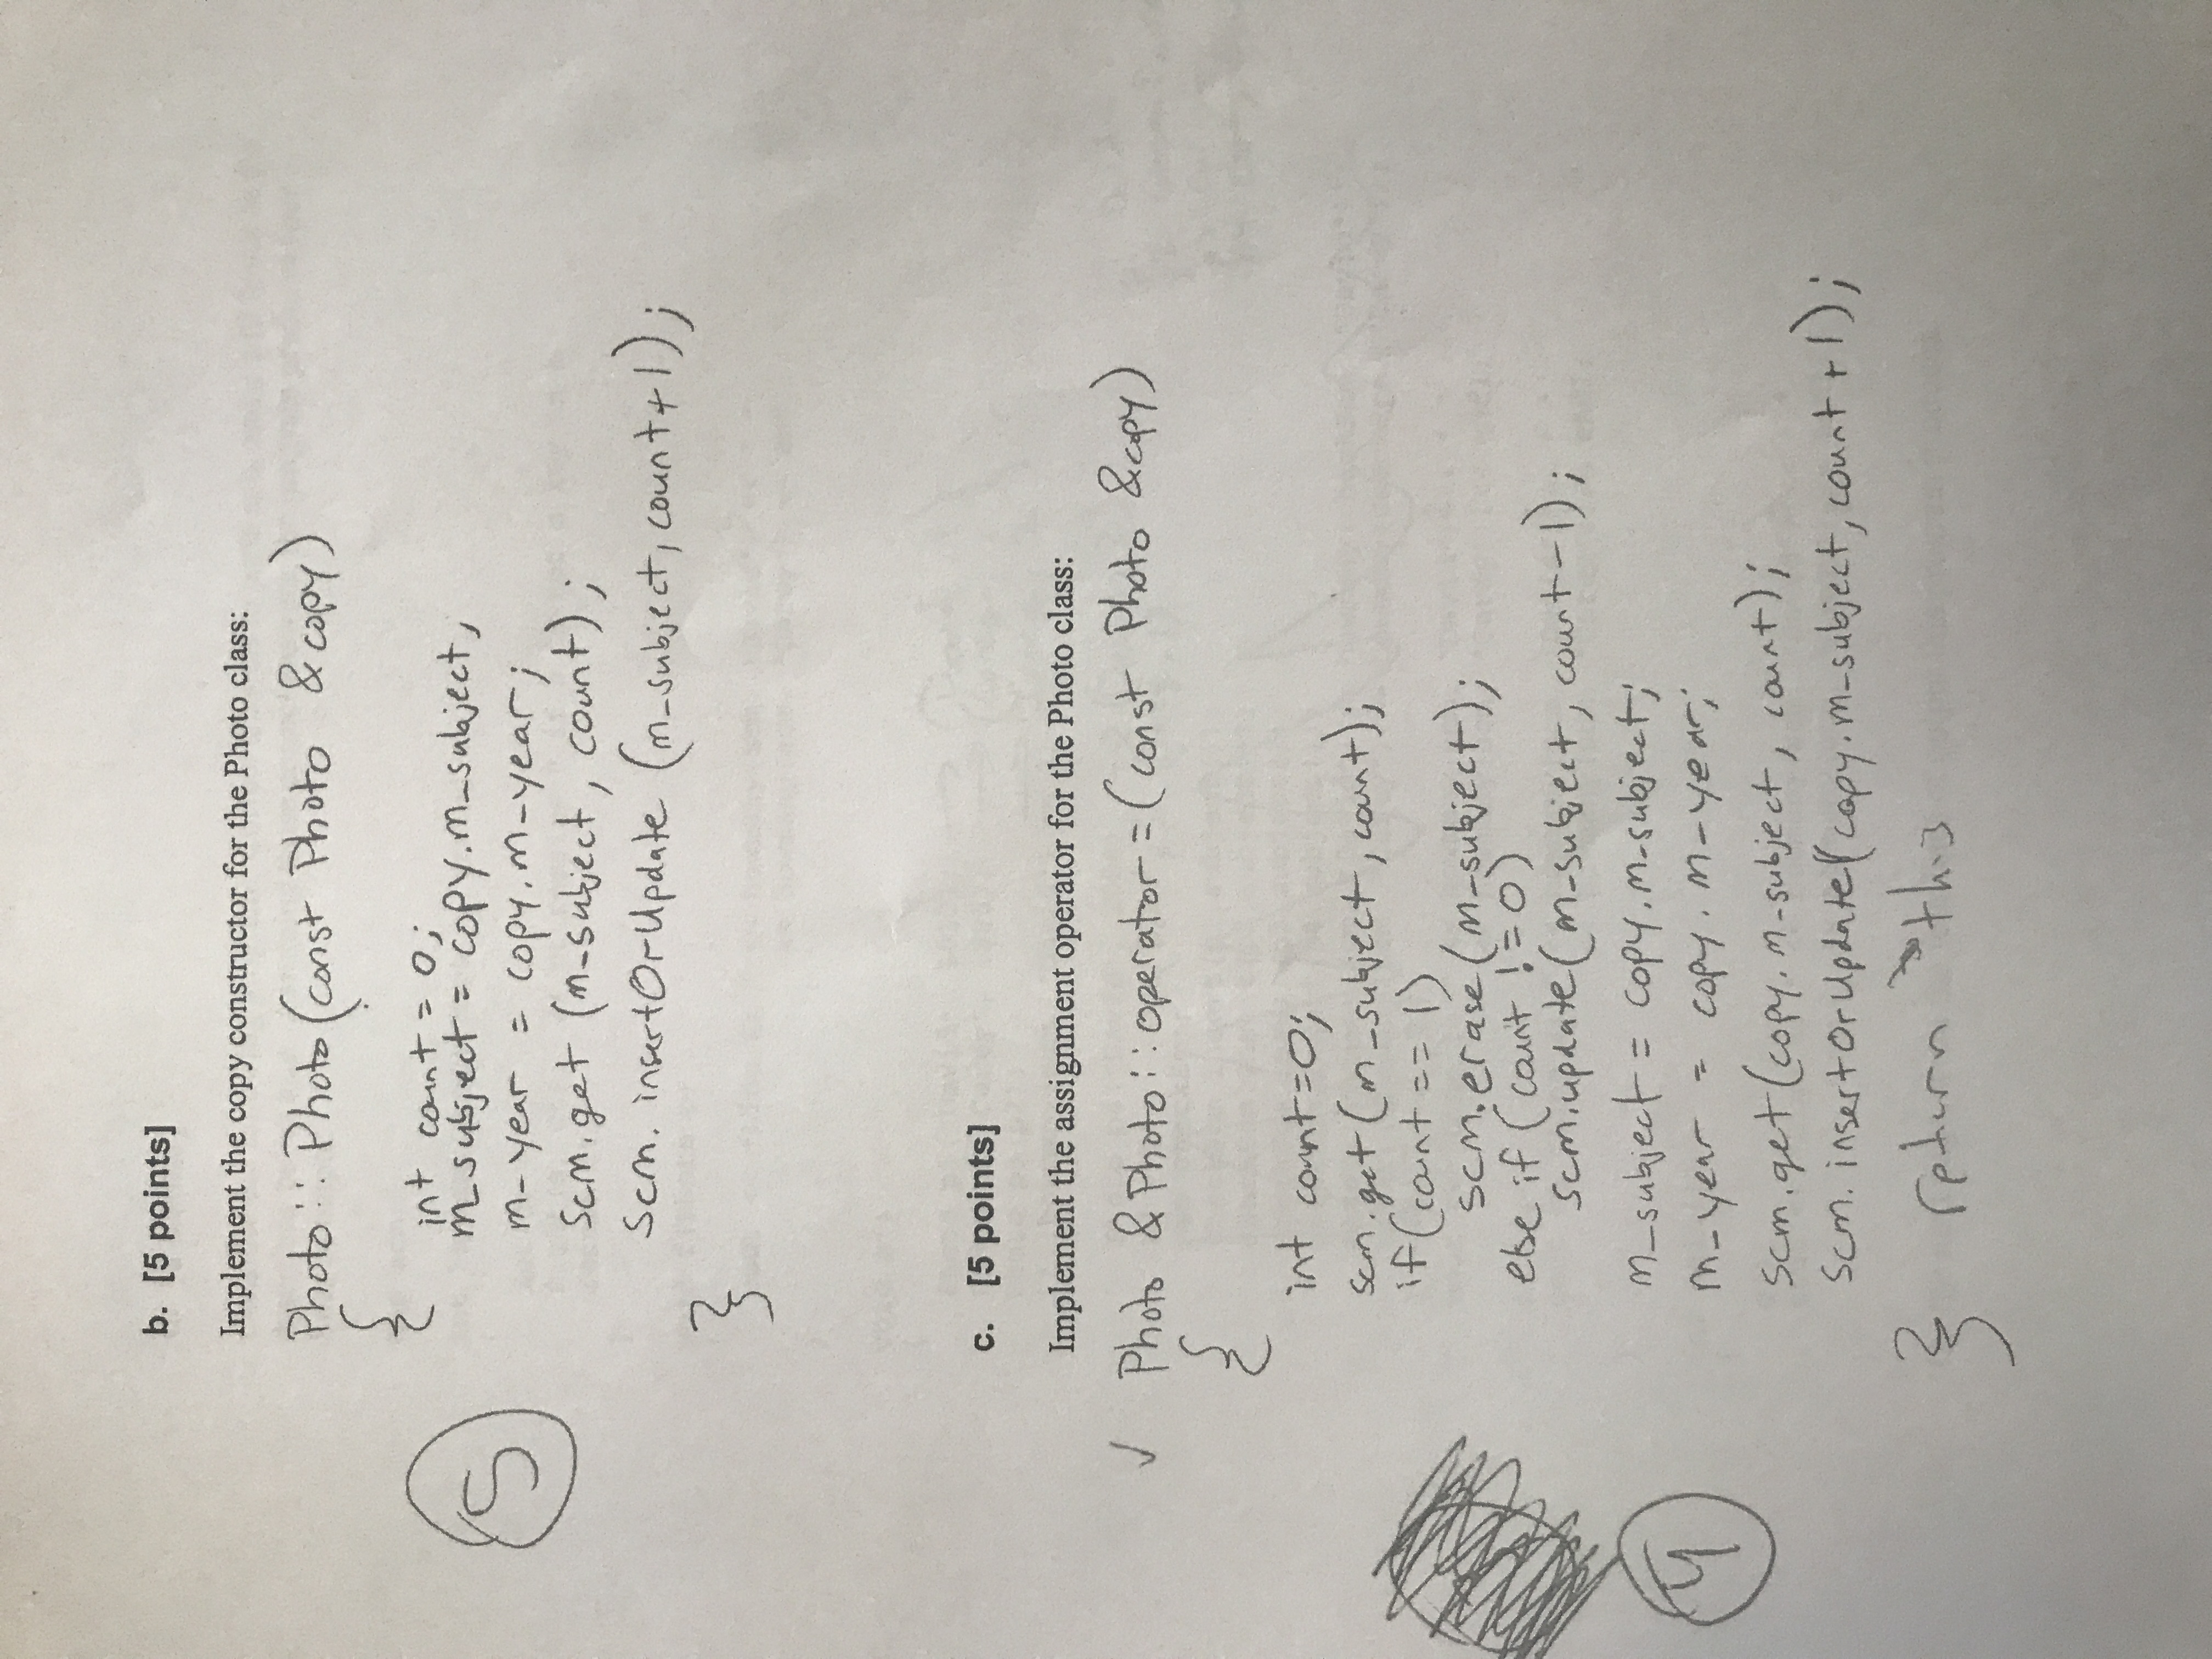 b. [5 points]
Implement the copy constructor for the Photo class:
Photo :: Photo (const Photo &copy)
{
int count = 0;
m_subject = copy.m_subject,
m_year = copy.m_year;
5
scm.get (m_subject, count);
scm.insertOrUpdate (m_subject, count+1);
}
c. [5 points]
Implement the assignment operator for the Photo class:
✓ Photo &Photo::operator=(const Photo &copy)
{
int count=0;
scm.get(m_subject, count);
if(count == 1)
scm.erase(m_subject);
else if (count != 0)
scm.update(m_subject, count-1);
m_subject = copy.m_subject;
4
m_year = copy.m_year;
scm.get(copy.m_subject, count);
scm.insertOrUpdate(copy.m_subject, count+1);
} return *this